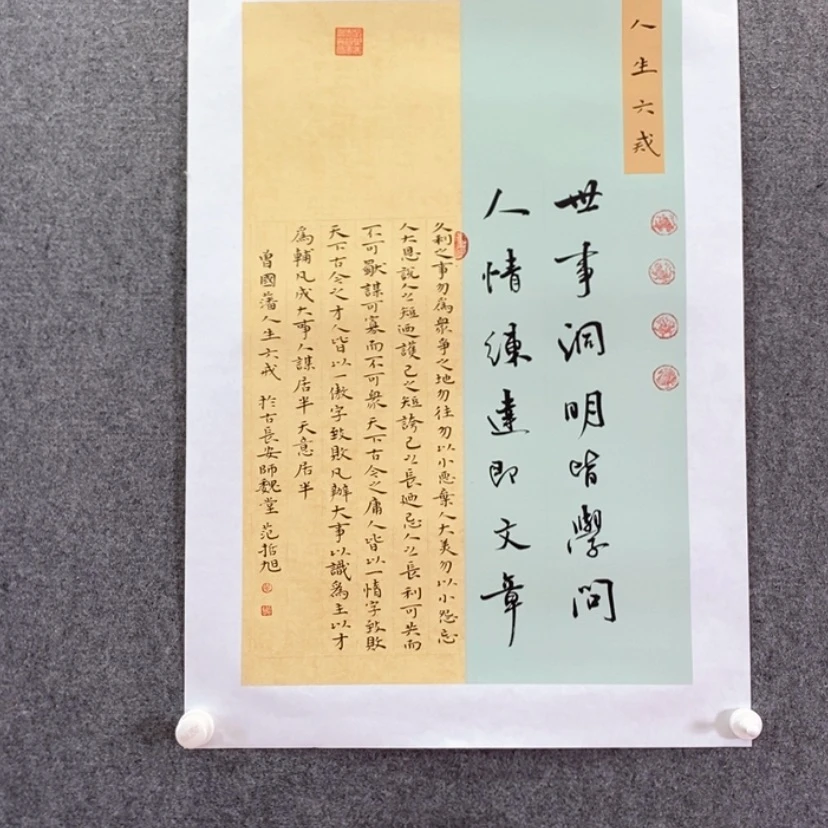 人生六戒
世事洞明皆學問
人情練達即文章
久利之事勿爲衆爭之地勿往勿以小惡棄人大美勿以小怨忘
人大恩說人之短迺護己之短誇己之長迺忌人之長利可共而
不可獨謀可寡而不可衆天下古今之庸人皆以一惰字致敗
天下古今之才人皆以一傲字致敗凡辦大事以識爲主以才
爲輔凡成大事人謀居半天意居半
曾國藩人生六戒 於古長安師魏堂 范哲旭